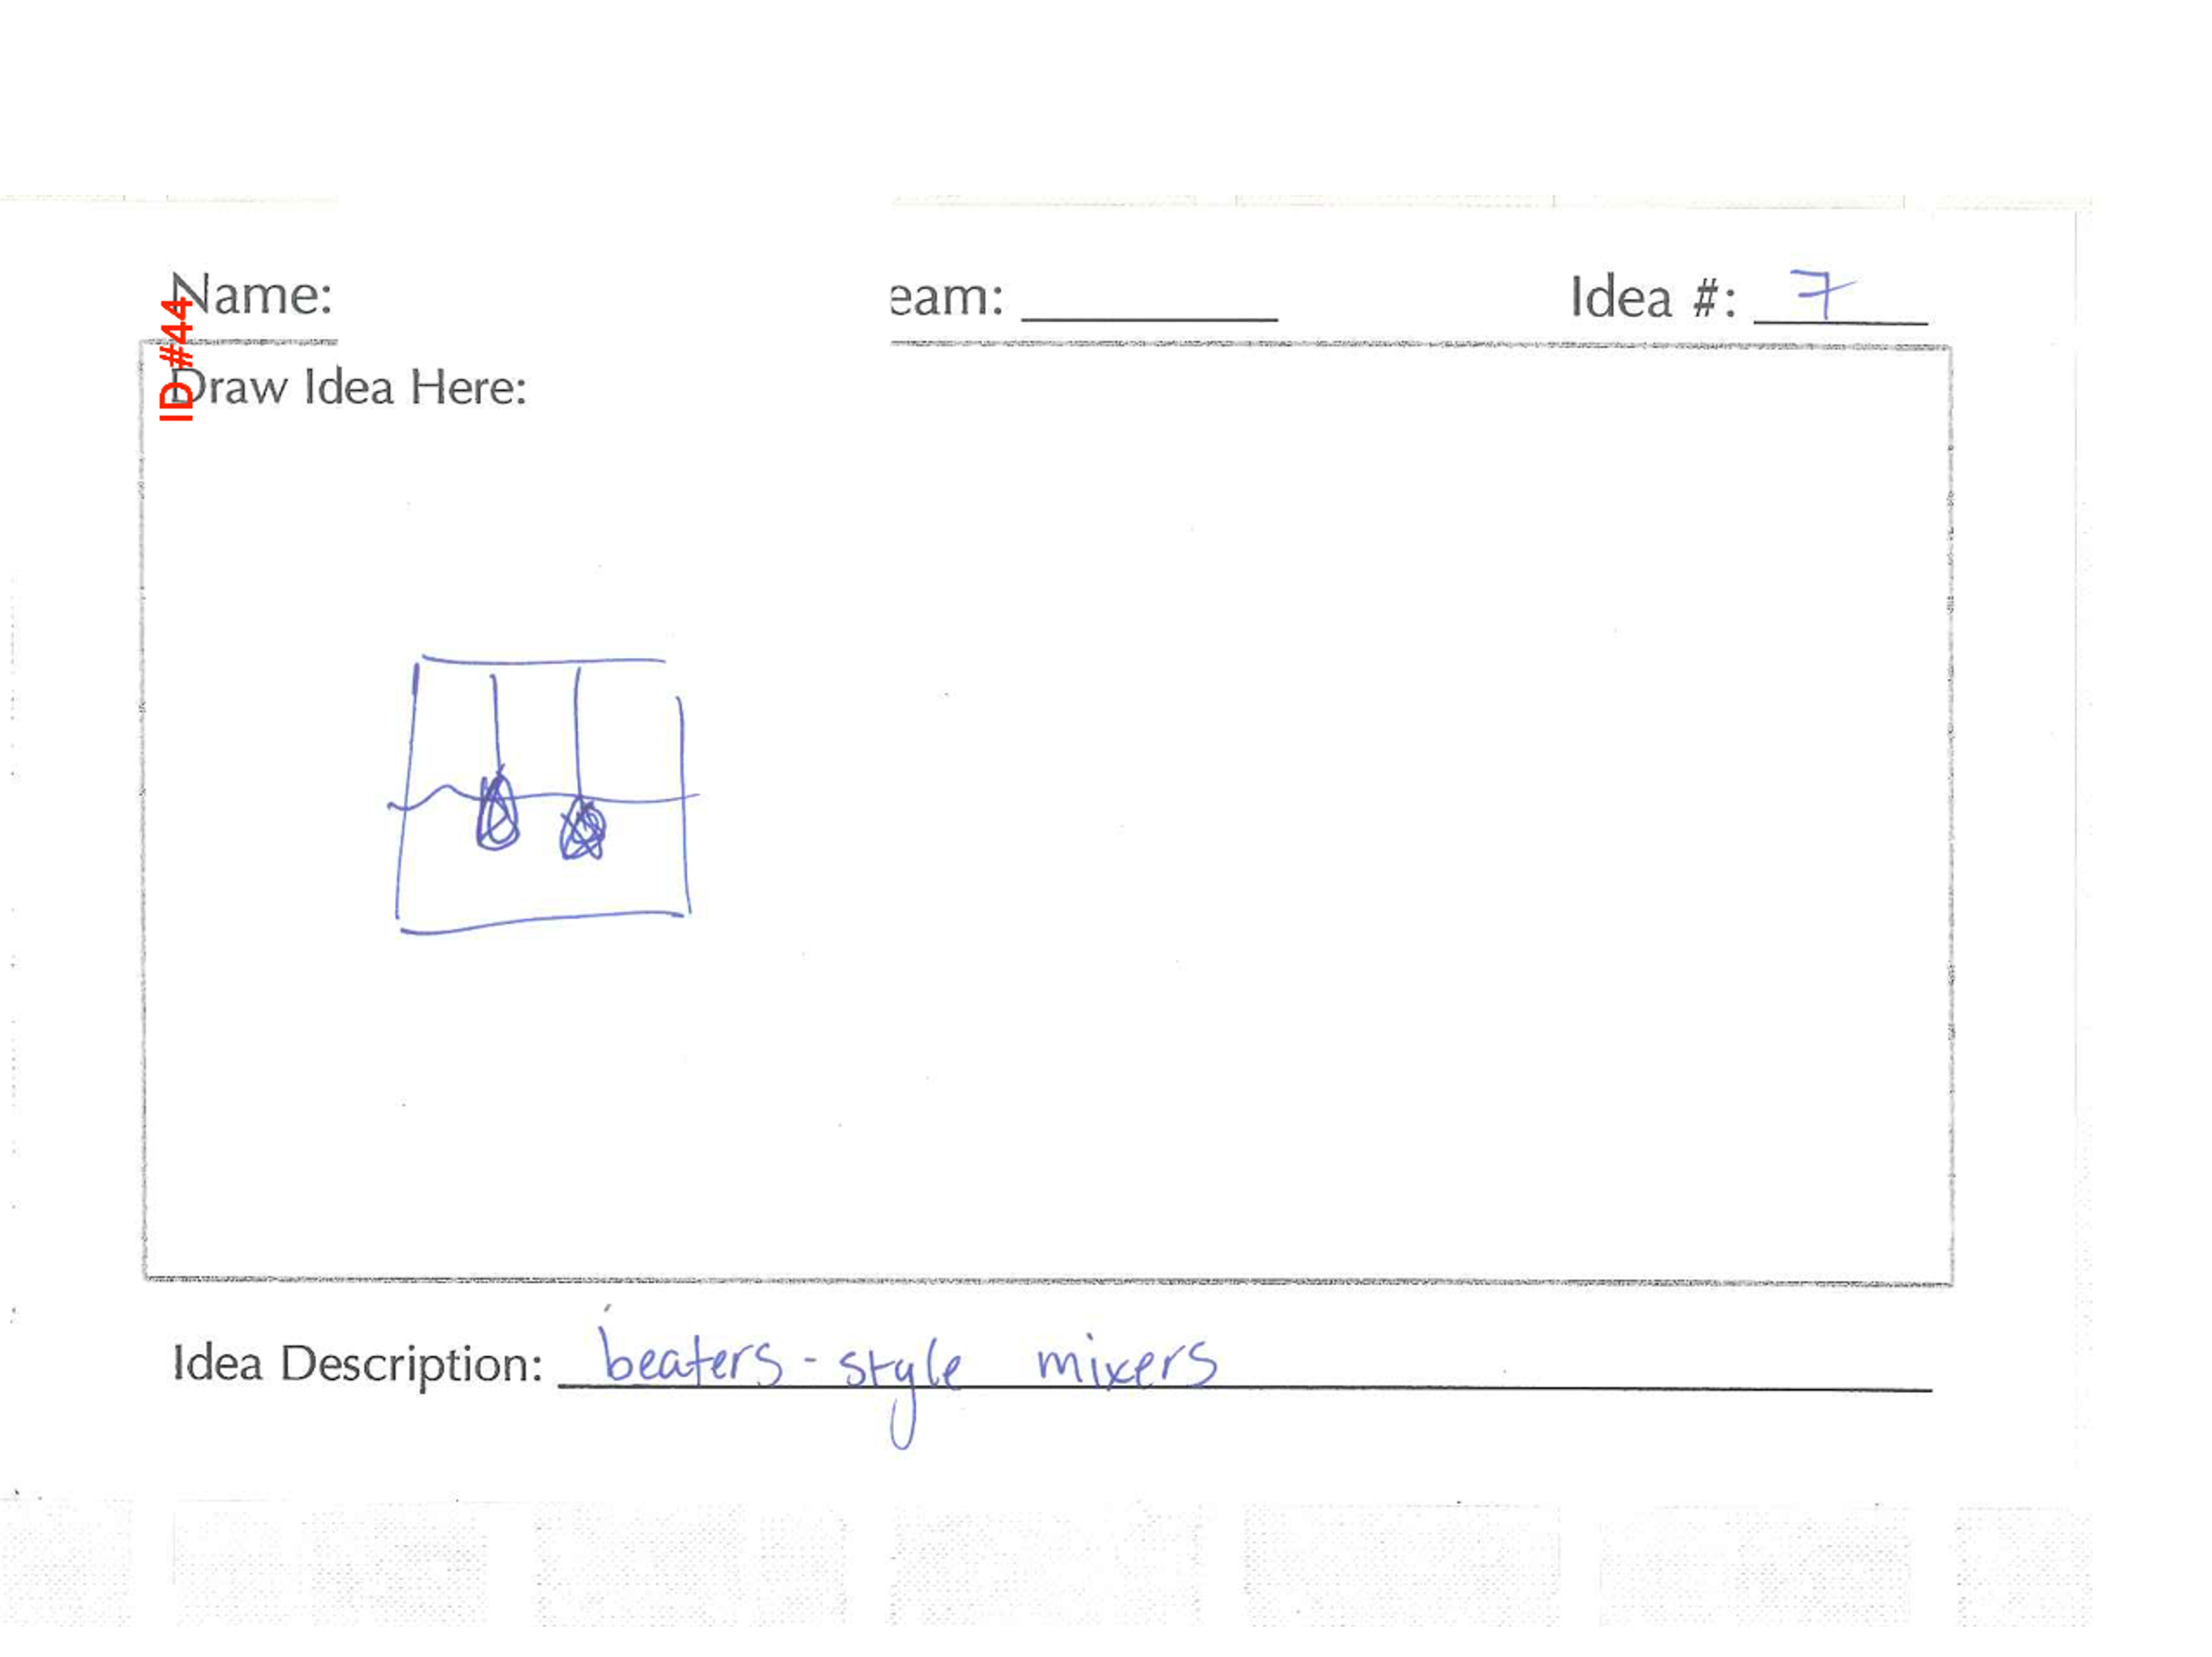 Name:
eam:
Idea #: 7
ID#44
Draw Idea Here:
Idea Description: beaters-style mixers